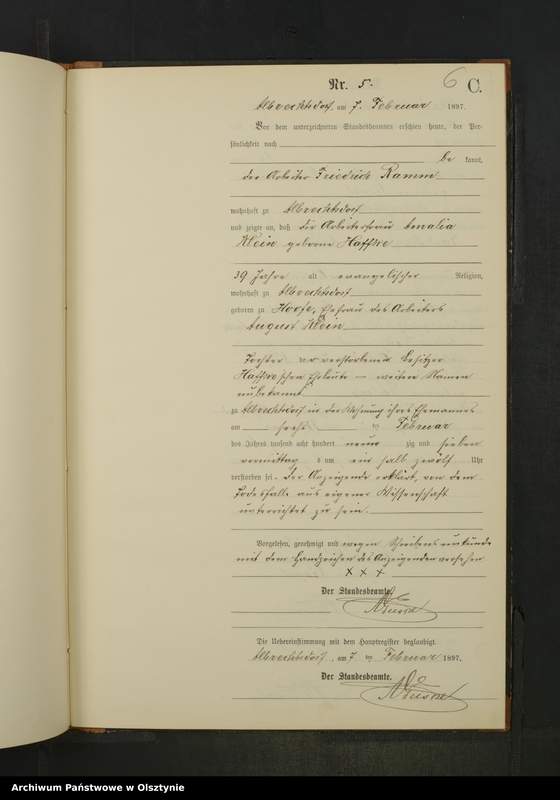 Nr. 5.
6
C.
Albrechtsdorf, am 7. Februar 1897.
Von dem unterzeichneten Standesbeamten erschien heute, der Per-
sönlichkeit nach
be kannt,
der Arbeiter Friedrich Ramm
wohnhaft zu Albrechtsdorf
und zeigte an, daß die Arbeiterfrau Amalia
Klein geborne Haffke
39 Jahre alt evangelischer Religion,
wohnhaft zu Albrechtsdorf
geboren zu Hoofe, Ehefrau des Arbeiters
August Klein
Tochter der verstorbenen Besitzer
Haffke'schen Eheleute – weitere Namen
unbekannt
zu Albrechtsdorf in der Wohnung ihres Ehemannes
am sechsten Februar
des Jahres tausend acht hundert neun zig und sieben
vormittag s um ein halb zwölf Uhr
verstorben sei. Der Anzeigende erklärt, von dem
Todesfalle aus eigener Wissenschaft
unterrichtet zu sein.
Vorgelesen, genehmigt und wegen Schreibensunkunde
mit dem Handzeichen des Anzeigenden versehen
x x x
Der Standesbeamte.
Die Uebereinstimmung mit dem Hauptregister beglaubigt.
Albrechtsdorf, am 7 ten Februar 1897.
Der Standesbeamte.
Archiwum Państwowe w Olsztynie